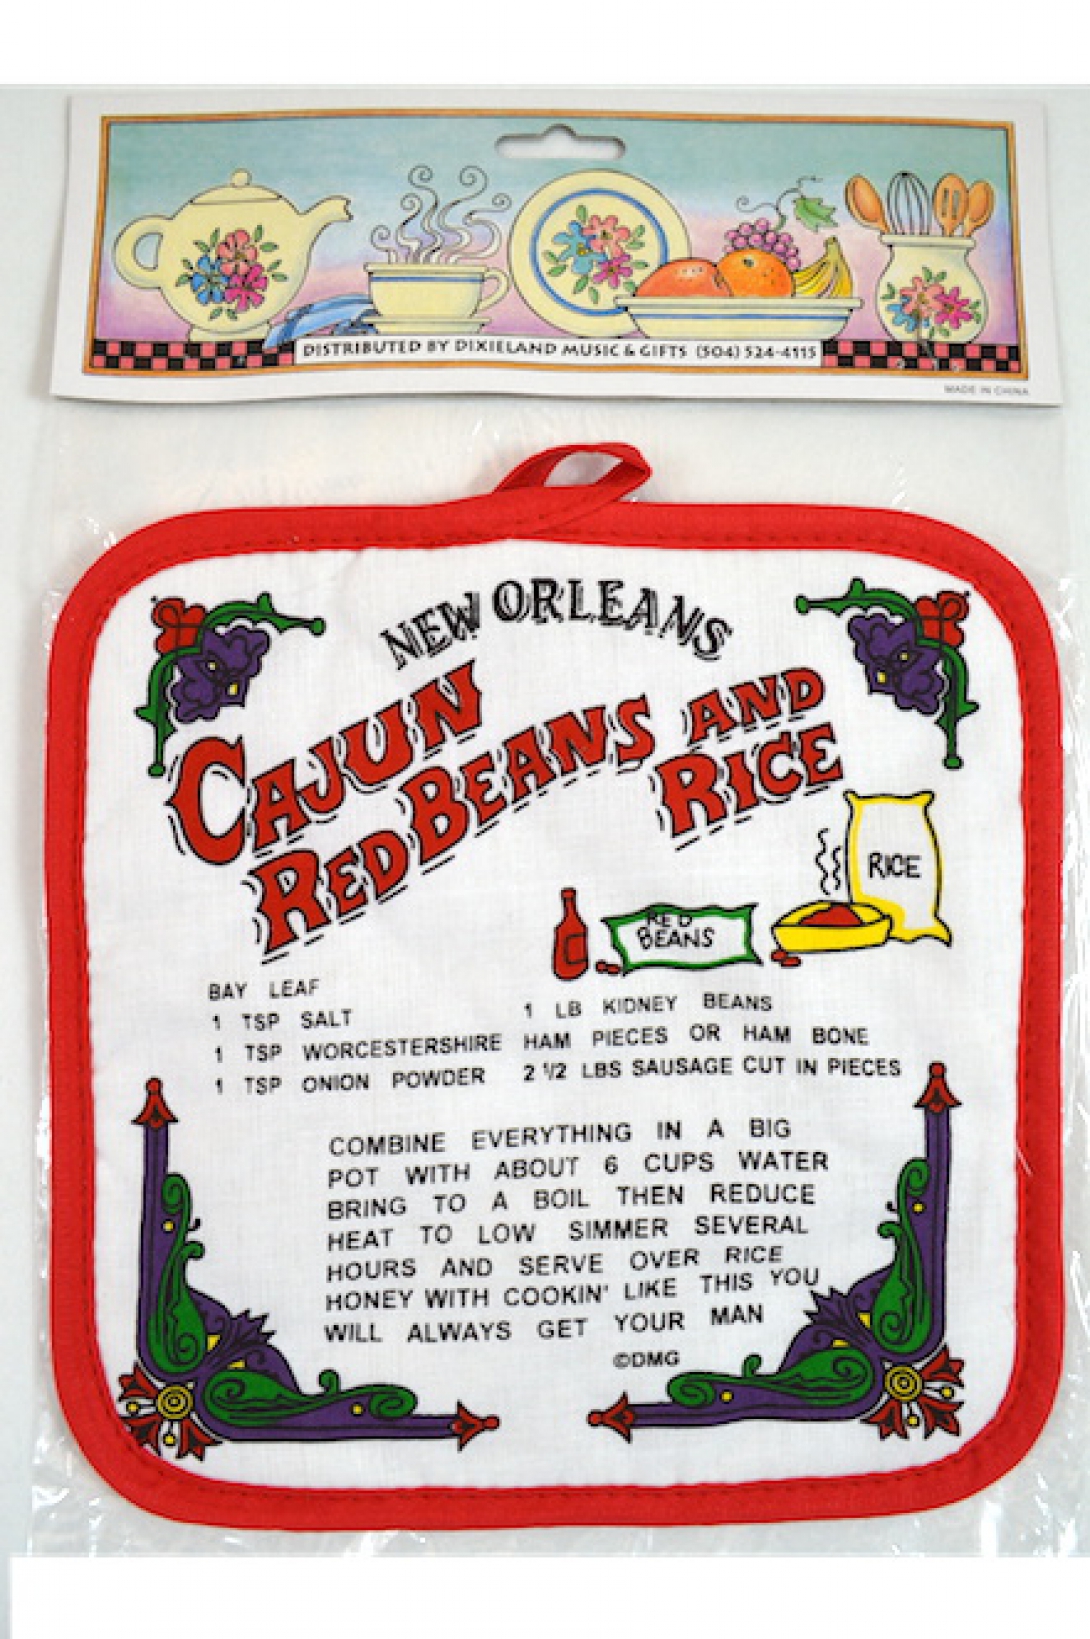 DISTRIBUTED BY DIXIELAND MUSIC & GIFTS (504) 524-4115
MADE IN CHINA
NEW ORLEANS
CAJUN
RED BEANS AND
RICE
RICE
RED
BEANS
BAY LEAF
1 TSP SALT
1 TSP WORCESTERSHIRE
1 TSP ONION POWDER
1 LB KIDNEY BEANS
HAM PIECES OR HAM BONE
2 1/2 LBS SAUSAGE CUT IN PIECES
COMBINE EVERYTHING IN A BIG
POT WITH ABOUT 6 CUPS WATER
BRING TO A BOIL THEN REDUCE
HEAT TO LOW SIMMER SEVERAL
HOURS AND SERVE OVER RICE
HONEY WITH COOKIN' LIKE THIS YOU
WILL ALWAYS GET YOUR MAN
©DMG